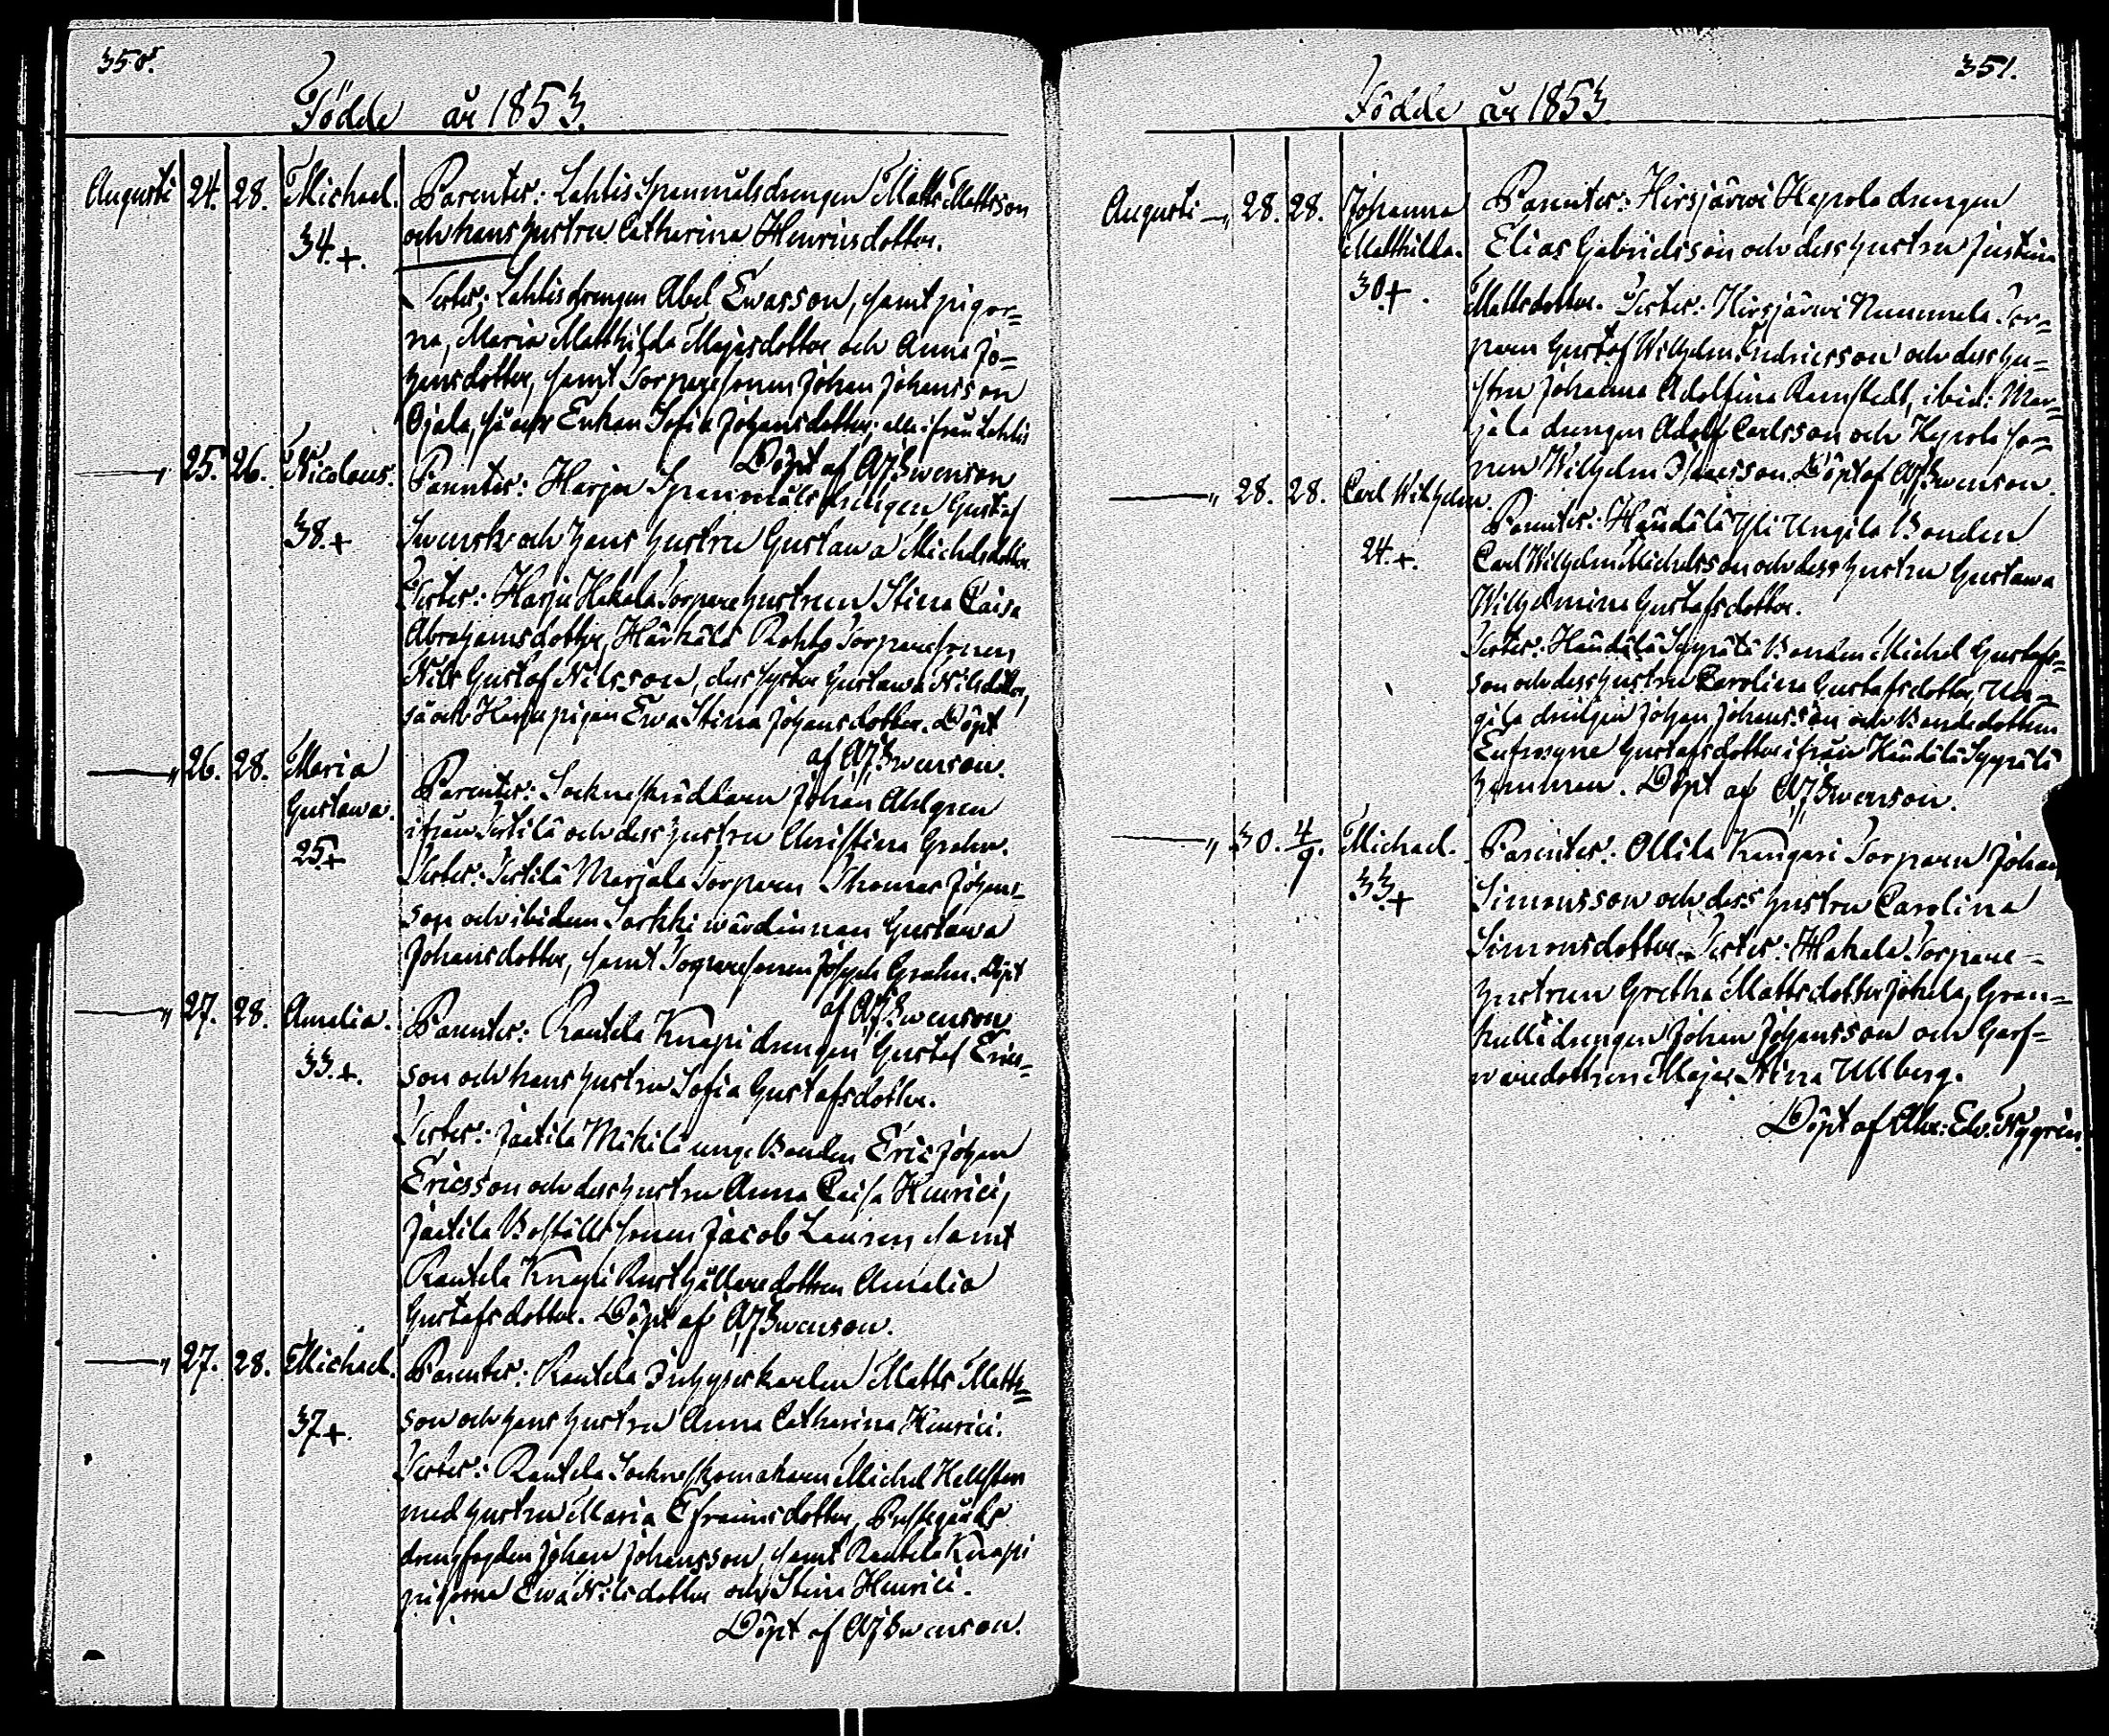 350.
Födde år 1853.
Augusti 24. 28. Michael. Parenter: Lahtis Spanmåls drengen Matts Mattsson
34.+. och hans hustru Catharina Henricsdotter.
Tester: Lahtis drengen Abel Ewasson, samt pigor=
na, Maria Mathilda Majasdotter och Anna Jo=
hansdotter, samt Torparesonen Johan Johansson
Ojala, så och Enkan Sofia Johansdotter; alla ifrån Lahtis
Döpt af AJSwenson
—„ 25. 26. Nicolaus. Parenter: Harju Spanmåls drengen Gustaf
38.+ Swensk och hans hustru Gustawa Michelsdotter.
Tester: Harju Hakala Torpare hustrun Stina Caisa
Abrahamsdotter, Härkälä Rohto Torparesonen
Nils Gustaf Nilsson, dess syster Gustawa Nilsdotter,
så och Harju pigan Ewa Stina Johansdotter. Döpt
af AJSwenson.
—„ 26. 28. Maria Parenter: Sockneskräddaren Johan Ahlgren
Gustawa. ifrån Tertilä och dess hustru Christina Grahn.
25+ Tester: Tertilä Marjala Torparen Thomas Johans=
son och ibidem Sarkki wärdinnan Gustawa
Johansdotter, samt Torparesonen Joseph Grahn. Döpt
af AJSwenson
—„ 27. 28. Amalia. Parenter: Rautela Knapi drengen Gustaf Erics=
33.+. son och hans hustru Sofia Gustafsdotter.
Tester: Jaetila Mikila unge Bonden Eric Johan
Ericsson och dess hustru Anna Caisa Henrici,
Jaetila Boställs sonen Jacob Lauren samt
Rautela Knapi Rusthållare dottren Amalia
Gustafsdotter. Döpt af AJSwenson.
—„ 27. 28. Michael. Parenter: Rautela Inhyseskarlen Matts Matts=
37+. son och hans hustru Anna Catharina Henrici.
Tester: Rautela Sockneskomakaren Michel Hellsten
med hustru Maria Efraimsdotter, Prestegårds
drengfogden Johan Johansson, samt Rautela Knapi
pigorna Ewa Nilsdotter och Stina Henrici.
Döpt af AJSwenson.
351.
Födde år 1853
Augusti —„ 28. 28. Johanna Parenter: Hirsjärwi Hepola drengen
Mathilda. Elias Gabrielsson och dess hustru Justina
30.+. Mattsdotter. Tester: Hirsjärwi Nummela Tor=
paren Gustaf Wilhelm Indricsson och dess hu=
stru Johanna Adolfina Ramstedt, ibid: Mar=
jala drengen Adolf Carlsson och Hepola so=
nen Wilhelm Isacsson. Döpt af AJSwenson.
—„ 28. 28. Carl Wilhelm. Parenter: Haudälä Yli Ungila Bonden
24.+. Carl Wilhelm Michelsson och dess hustru Gustawa
Wilhelmina Gustafsdotter.
Tester: Haudälä Seppälä Bonden Michel Gustafs=
son och dess hustru Carolina Gustafsdotter, Un=
gila drengen Johan Johansson och Bondedottren
Eufrosyne Gustafsdotter ifrån Haudälä Seppälä
hemman. Döpt af AJSwenson.
—„ 30. 4/9. Michael. Parenter: Ollila Kangari Torparen Johan
33.+ Simonsson och dess hustru Carolina
Simonsdotter. Tester: Hakala Torpare=
hustrun Gretha Mattsdotter Johela, Gran=
kulla drengen Johan Johansson och Garf=
waredottren Maja Stina Ullberg.
Döpt af Alex: Edv. Nygrén.